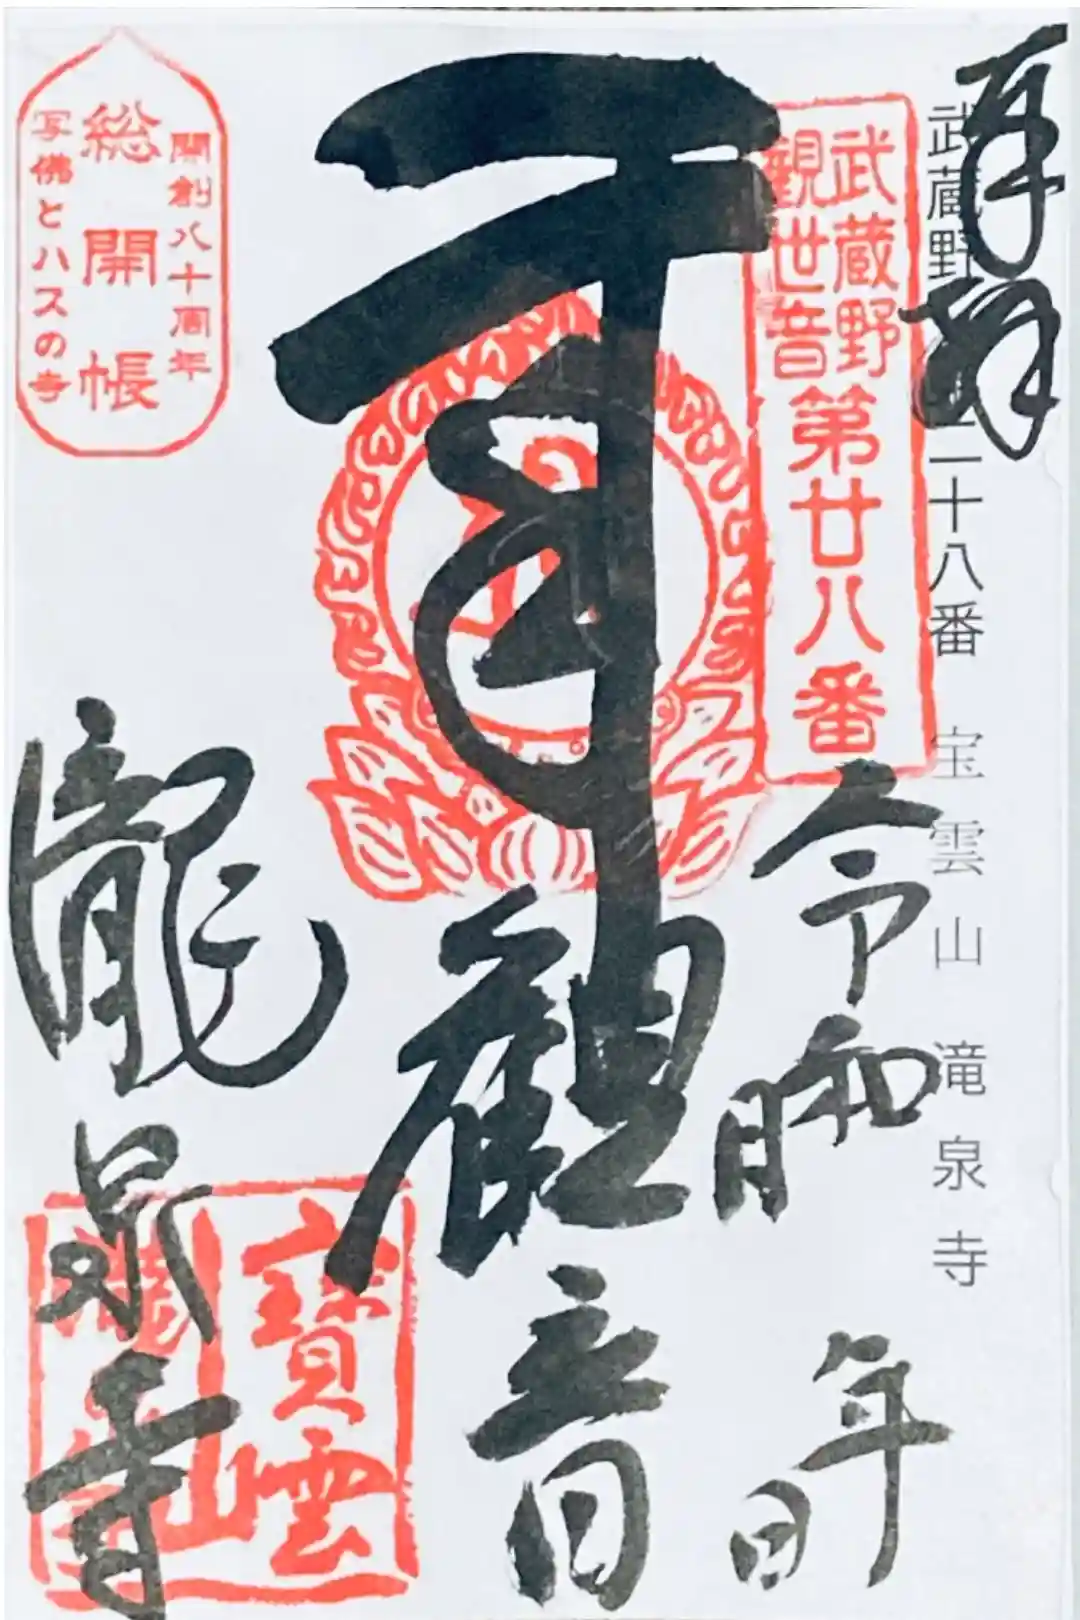 奉拝
武蔵野
二十八番 宝雲山 滝泉寺
武蔵野
觀世音
第廿八番
令和 年
月 日
觀音
開創八十周年
総開帳
写佛とハスの寺
龍泉寺
寶雲
山